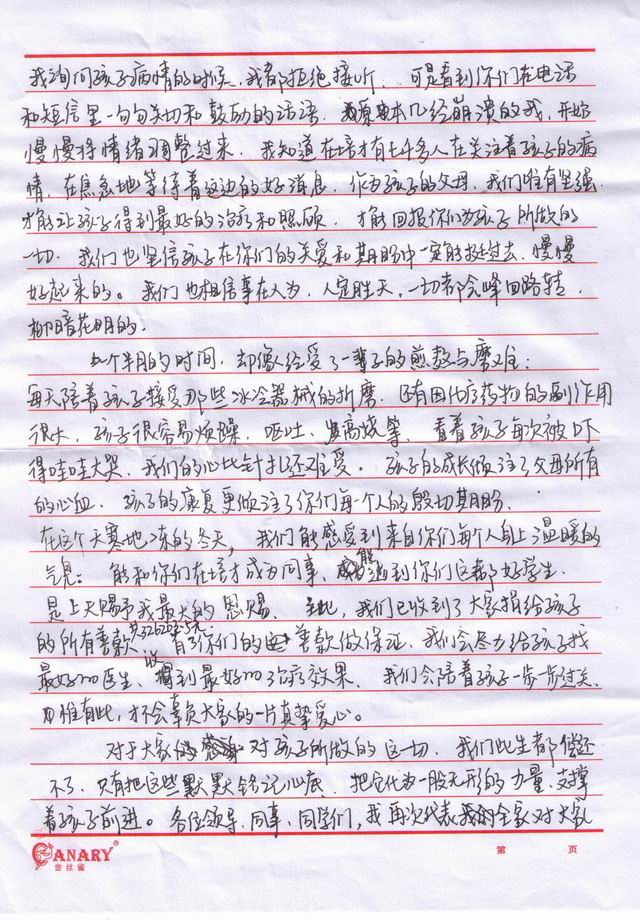 我询问孩子病情的时候，我都拒绝接听。可是看到你们在电话
和短信里一句句关切和鼓励的话语，原本几经崩溃的我，开始
慢慢将情绪调整过来。我知道在培才有七千多人在关注着孩子的病
情，在焦急地等待着这边的好消息。作为孩子的父母，我们唯有坚强
才能让孩子得到最好的治疗和照顾，才能回报你们为孩子所做的
一切。我们也坚信孩子在你们的关爱和期盼中一定能挺过去，慢慢
好起来的。我们也相信事在人为，人定胜天，一切都会峰回路转，
柳暗花明的。
个半月的时间，却像经受了一辈子的煎熬与磨难：
每天陪着孩子接受那些冰冷器械的折磨，还有因化疗药物的副作用
很大，孩子很容易烦躁、呕吐、高烧等，看着孩子每次被吓
得哇哇大哭，我们的心比针扎还难受。孩子的成长倾注了父母所有
的心血，孩子的康复更倾注了你们每一个人的殷切期盼。
在这个天寒地冻的冬天，我们能感受到来自你们每个人身上温暖的
气息：能和你们在培才成为同事，能遇到你们这群好学生
是上天赐予我最大的恩赐。我们已收到了大家捐给孩子
的所有善款，有了你们的善款做保证，我们会尽力给孩子找
最好的医生，得到最好的治疗效果。我们会陪着孩子一步一步过关，
唯有此，才不会辜负大家的一片真挚爱心。
对于大家对孩子所做的这一切，我们此生都偿还
不了，只有把这些默默铭记心底，把它化为一股无形的力量，支撑
着孩子前进。各位领导、同事、同学们，我再次代表我的全家对大家
CANARY®
金丝雀
第 页